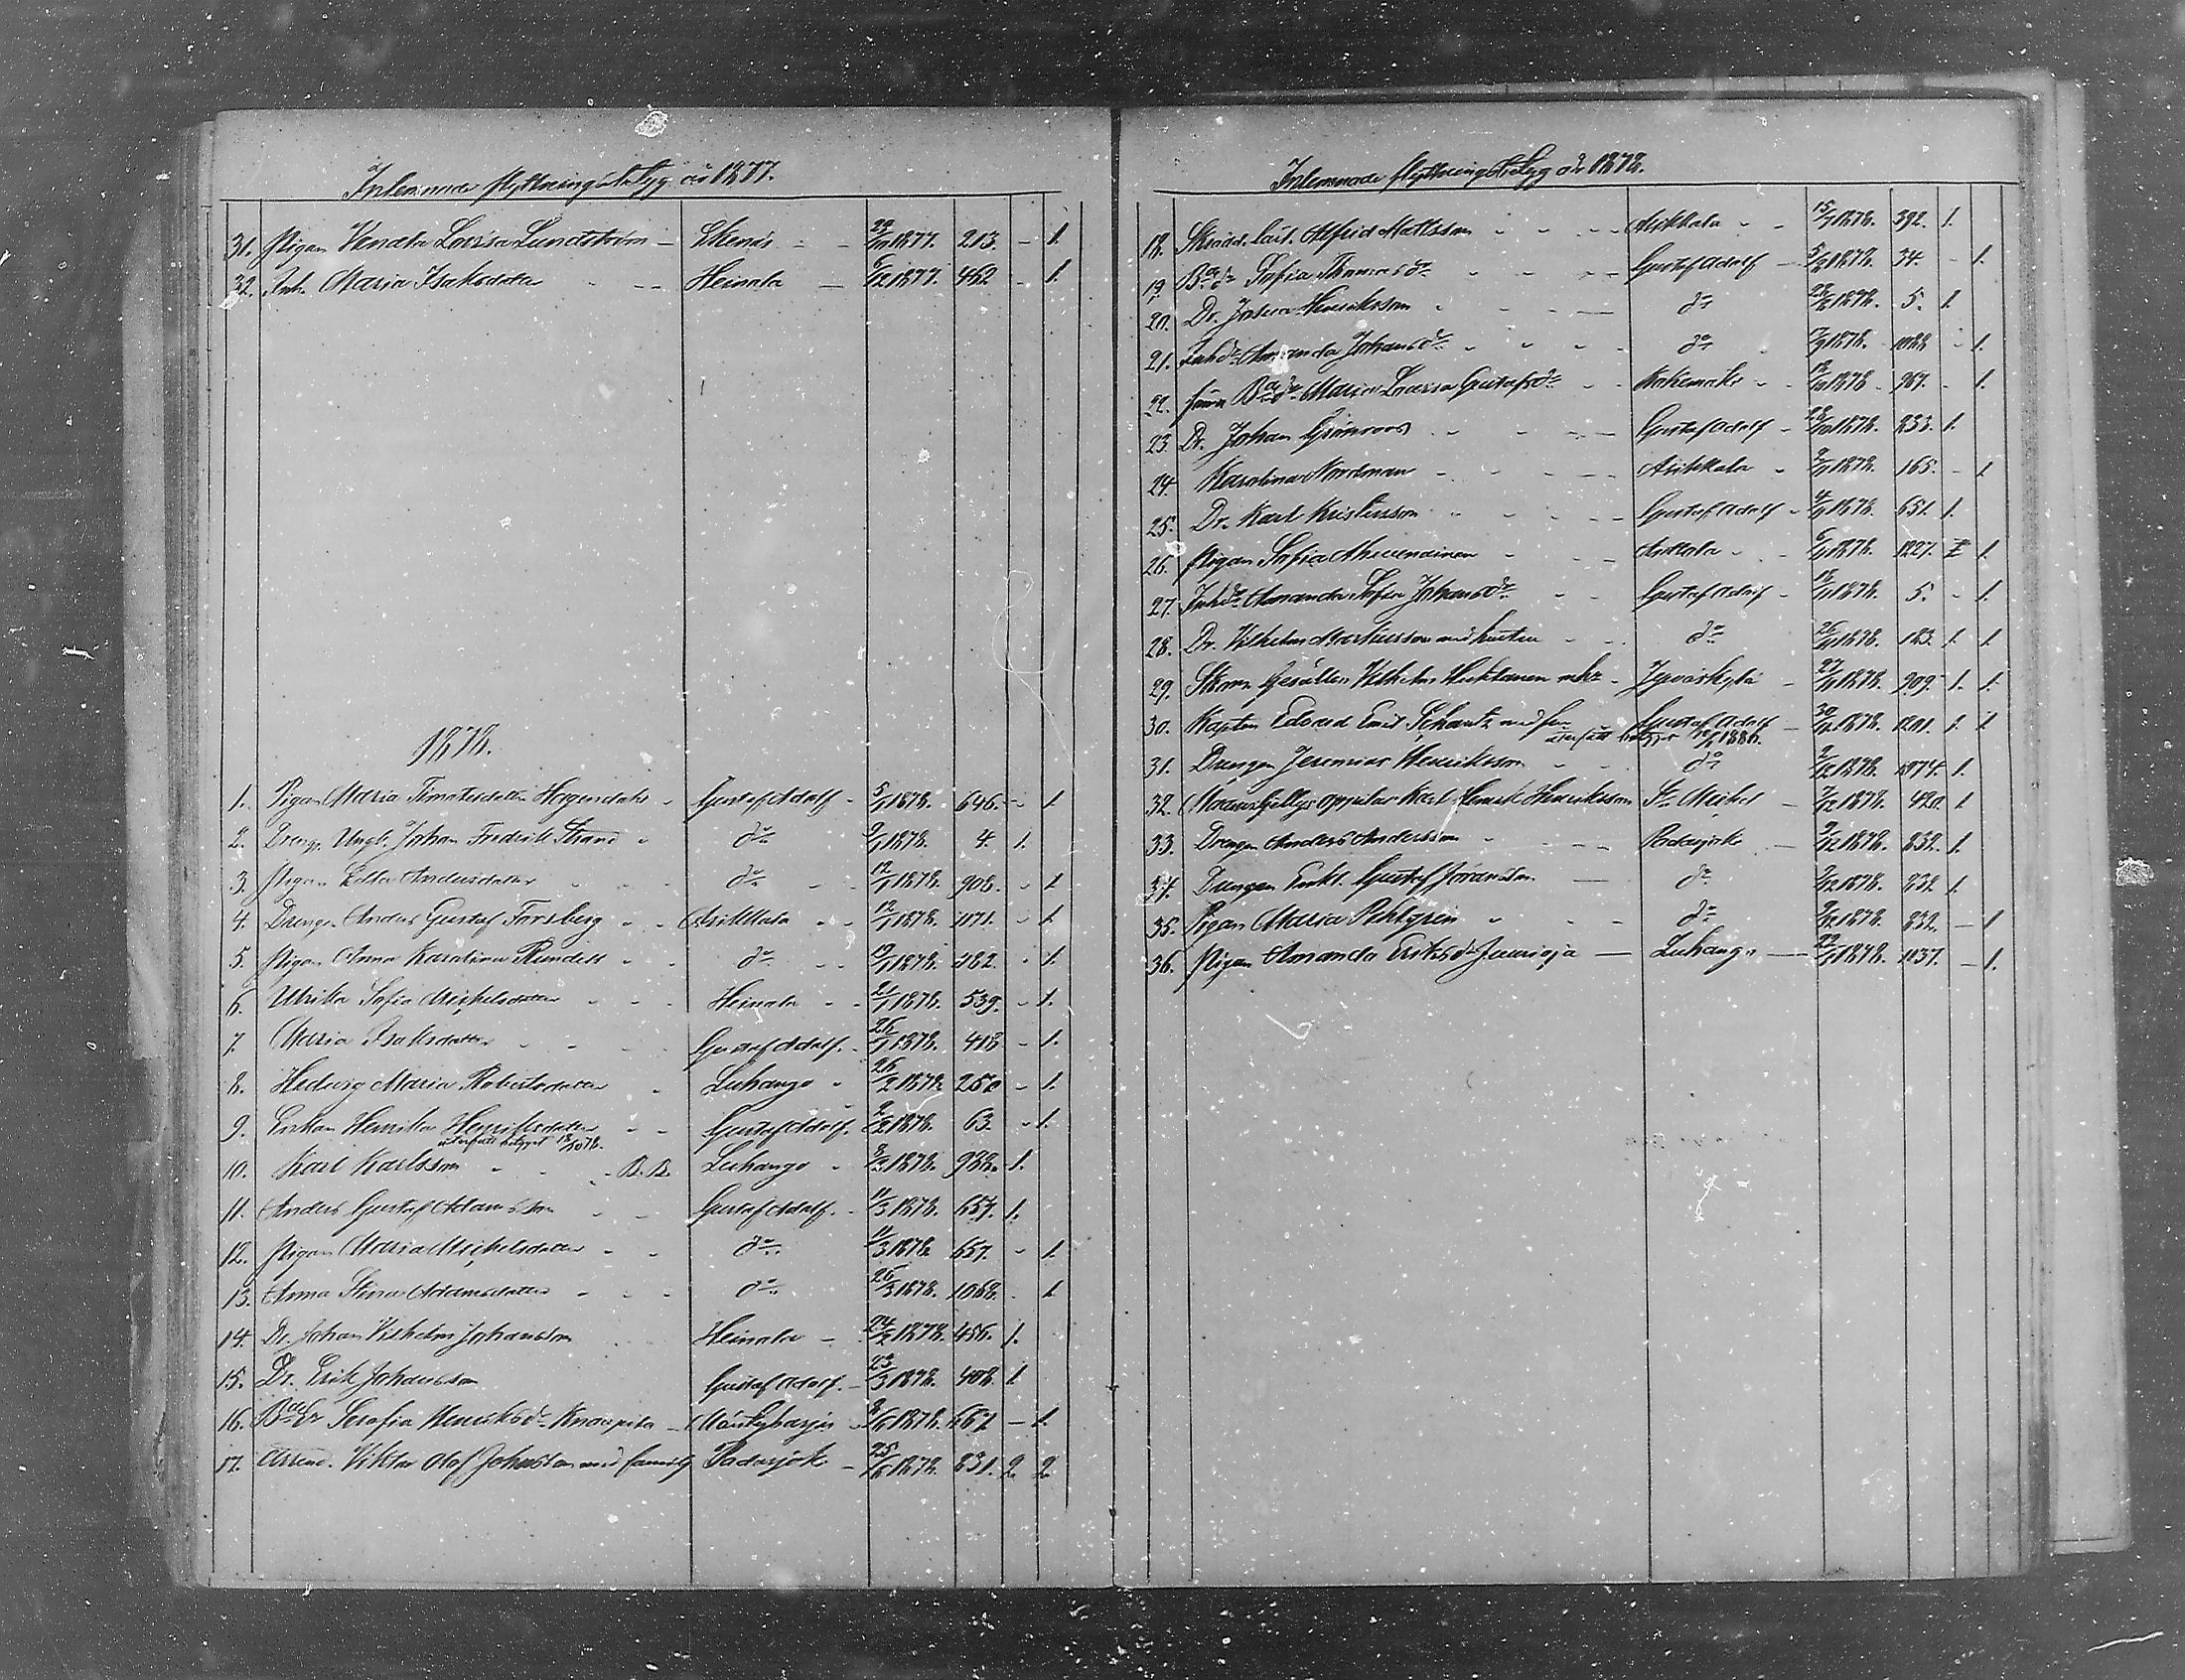 Inlemnade flyttningsbetyg år 1877.
31. Pigan Vendla Lovisa Lundström — Ekenäs - - 1877. 213. - 1.
32. Inh. Maria Isaksdotter - - Heinola — 6/12 1877. 462 - 1.
1878.
1. Pigan Maria Hagendahl - Gustaf Adolf - 5/1 1878. 646. - 1
2. Dreng. Ungk. Johan Fredrik Strand - do 9/1 1878. 4. 1.
3. Pigan Andersdotter do - - 12/1 1878. 908. - 1
4. Drengen Anders Gustaf Forsberg - - Asikkala - - 12/1 1878. 1171. - 1
5. Pigan Anna Karolina Rundell - - do - - 19/1 1878. 282. - 1.
6. Ulrika Sofia Michelsdotter - - - Heinola - - 21/1 1878. 539. - 1.
7. Maria Isaksdotter - - - Gustaf Adolf. - 26/1 1878. 418 - 1.
8. Hedvig Maria Robertsdotter - Luhango - 26/2 1878 250 - 1.
9. Enkan Henrika Henriksdotter - - Gustaf Adolf. 2/2 1878. 63. - 1.
återfått betyget
10. Karl Karlsson - - - Luhango - 1878. 988. 1.
11. Anders Gustaf Adamsson - - Gustaf Adolf. - 11/3 1878. 657. 1.
12. Pigan Maria Michelsdotter - - do 11/3 1878. 657. - 1
13. Anna Stina Adamsdotter - - - do 26/3 1878. 1068. - 1
14. Dr. Johan Vilhelm Johansson Heinola - 24/2 1878. 456. 1.
15. Dr. Erik Johansson Gustaf Adolf. - 23/3 1878. 408. 1
16. Serafia Henriksdr - Mäntyharju - 1878. 667 - 1.
17. Arrend. Viktor Olof Johansson med familj Padasjoki - 25/ 1878. 831. 2 2

Inlemnade flyttningsbetyg år 1878.
18. Alfred Mattsson - - - Asikkala - - 15/7 1878. 392. 1.
19. Sofia Thomasdr - - - Gustaf Adolf - 1878. 34. - 1.
20. Dr. Josua Henriksson - - - do 1878. 5. 1.
21. Inhdr Amanda Johansdr - - - - do 1878. 1088 - 1.
22. Maria Lovisa Gustafsdr - - 1878 - 967. - 1.
23. Dr. Johan Grönroos - - - Gustaf Adolf - 28/10 1878. 833. 1.
24. Karolina Nordman - - - - Asikkala - 1878. 165. - 1
25. Dr. Karl Kristersson - - - - Gustaf Adolf - 4/11 1878. 651. 1.
26. Pigan Sofia - - - Asikkala - - 6/11 1878. 1227. 1.
27. Inhdr Amanda Sofia Johansdr - - Gustaf Adolf - 1878. 5. - 1.
28. Dr. Vilhelm med hustru - - do 26/11 1878. 183. 1. 1.
29. Gesällen Vilhelm - Jyväskylä - 27/11 1878. 909. 1. 1.
30. Kapten Edvard Emil Schantz med fru Gustaf Adolf - 1878. 1201. 1. 1
återfått betyget 1886.
31. Drengen Jeremias Henriksson - - do 2/12 1878. 1074. 1.
32. Karl Henrik Henriksson St. Michel - 7/12 1878. 420. 1
33. Drengen Anders Andersson - - - - Padasjoki — 9/12 1878. 832. 1.
34. Drengen Gustaf Göransson — do 9/12 1878. 832 1.
35. Pigan Maria - - - do 9/12 1878. 832. — 1
36. Pigan Amanda Eriksdr — Luhango — 1878. 1137. — 1.